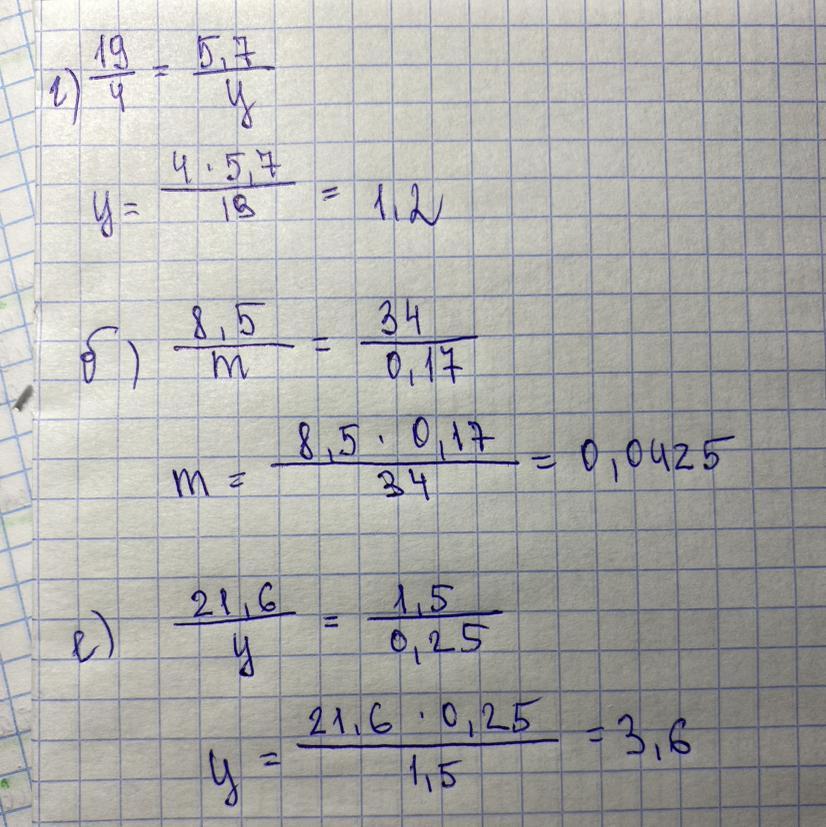 г) 19/4 = 5,7/y
y = 4 · 5,7/19 = 1,2
б) 8,5/m = 34/0,17
m = 8,5 · 0,17/34 = 0,0425
е) 21,6/y = 1,5/0,25
y = 21,6 · 0,25/1,5 = 3,6